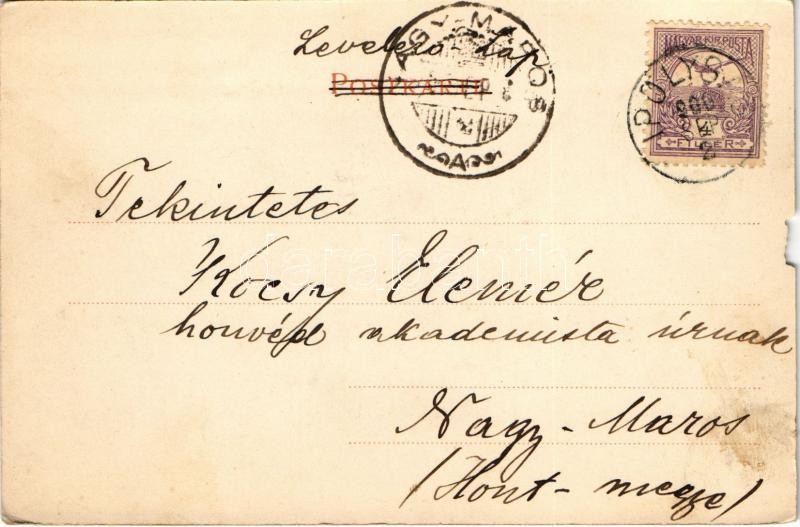 Levelező Lap
POSTKARTE
NAGY-MAROS
A
MAGYAR KIR. POSTA
IPOLYSÁG
FILLÉR
Tekintetes
Kocsy Elemér
honvéd akademista úrnak
Nagy-Maros
(Hont-megye)
darabanth